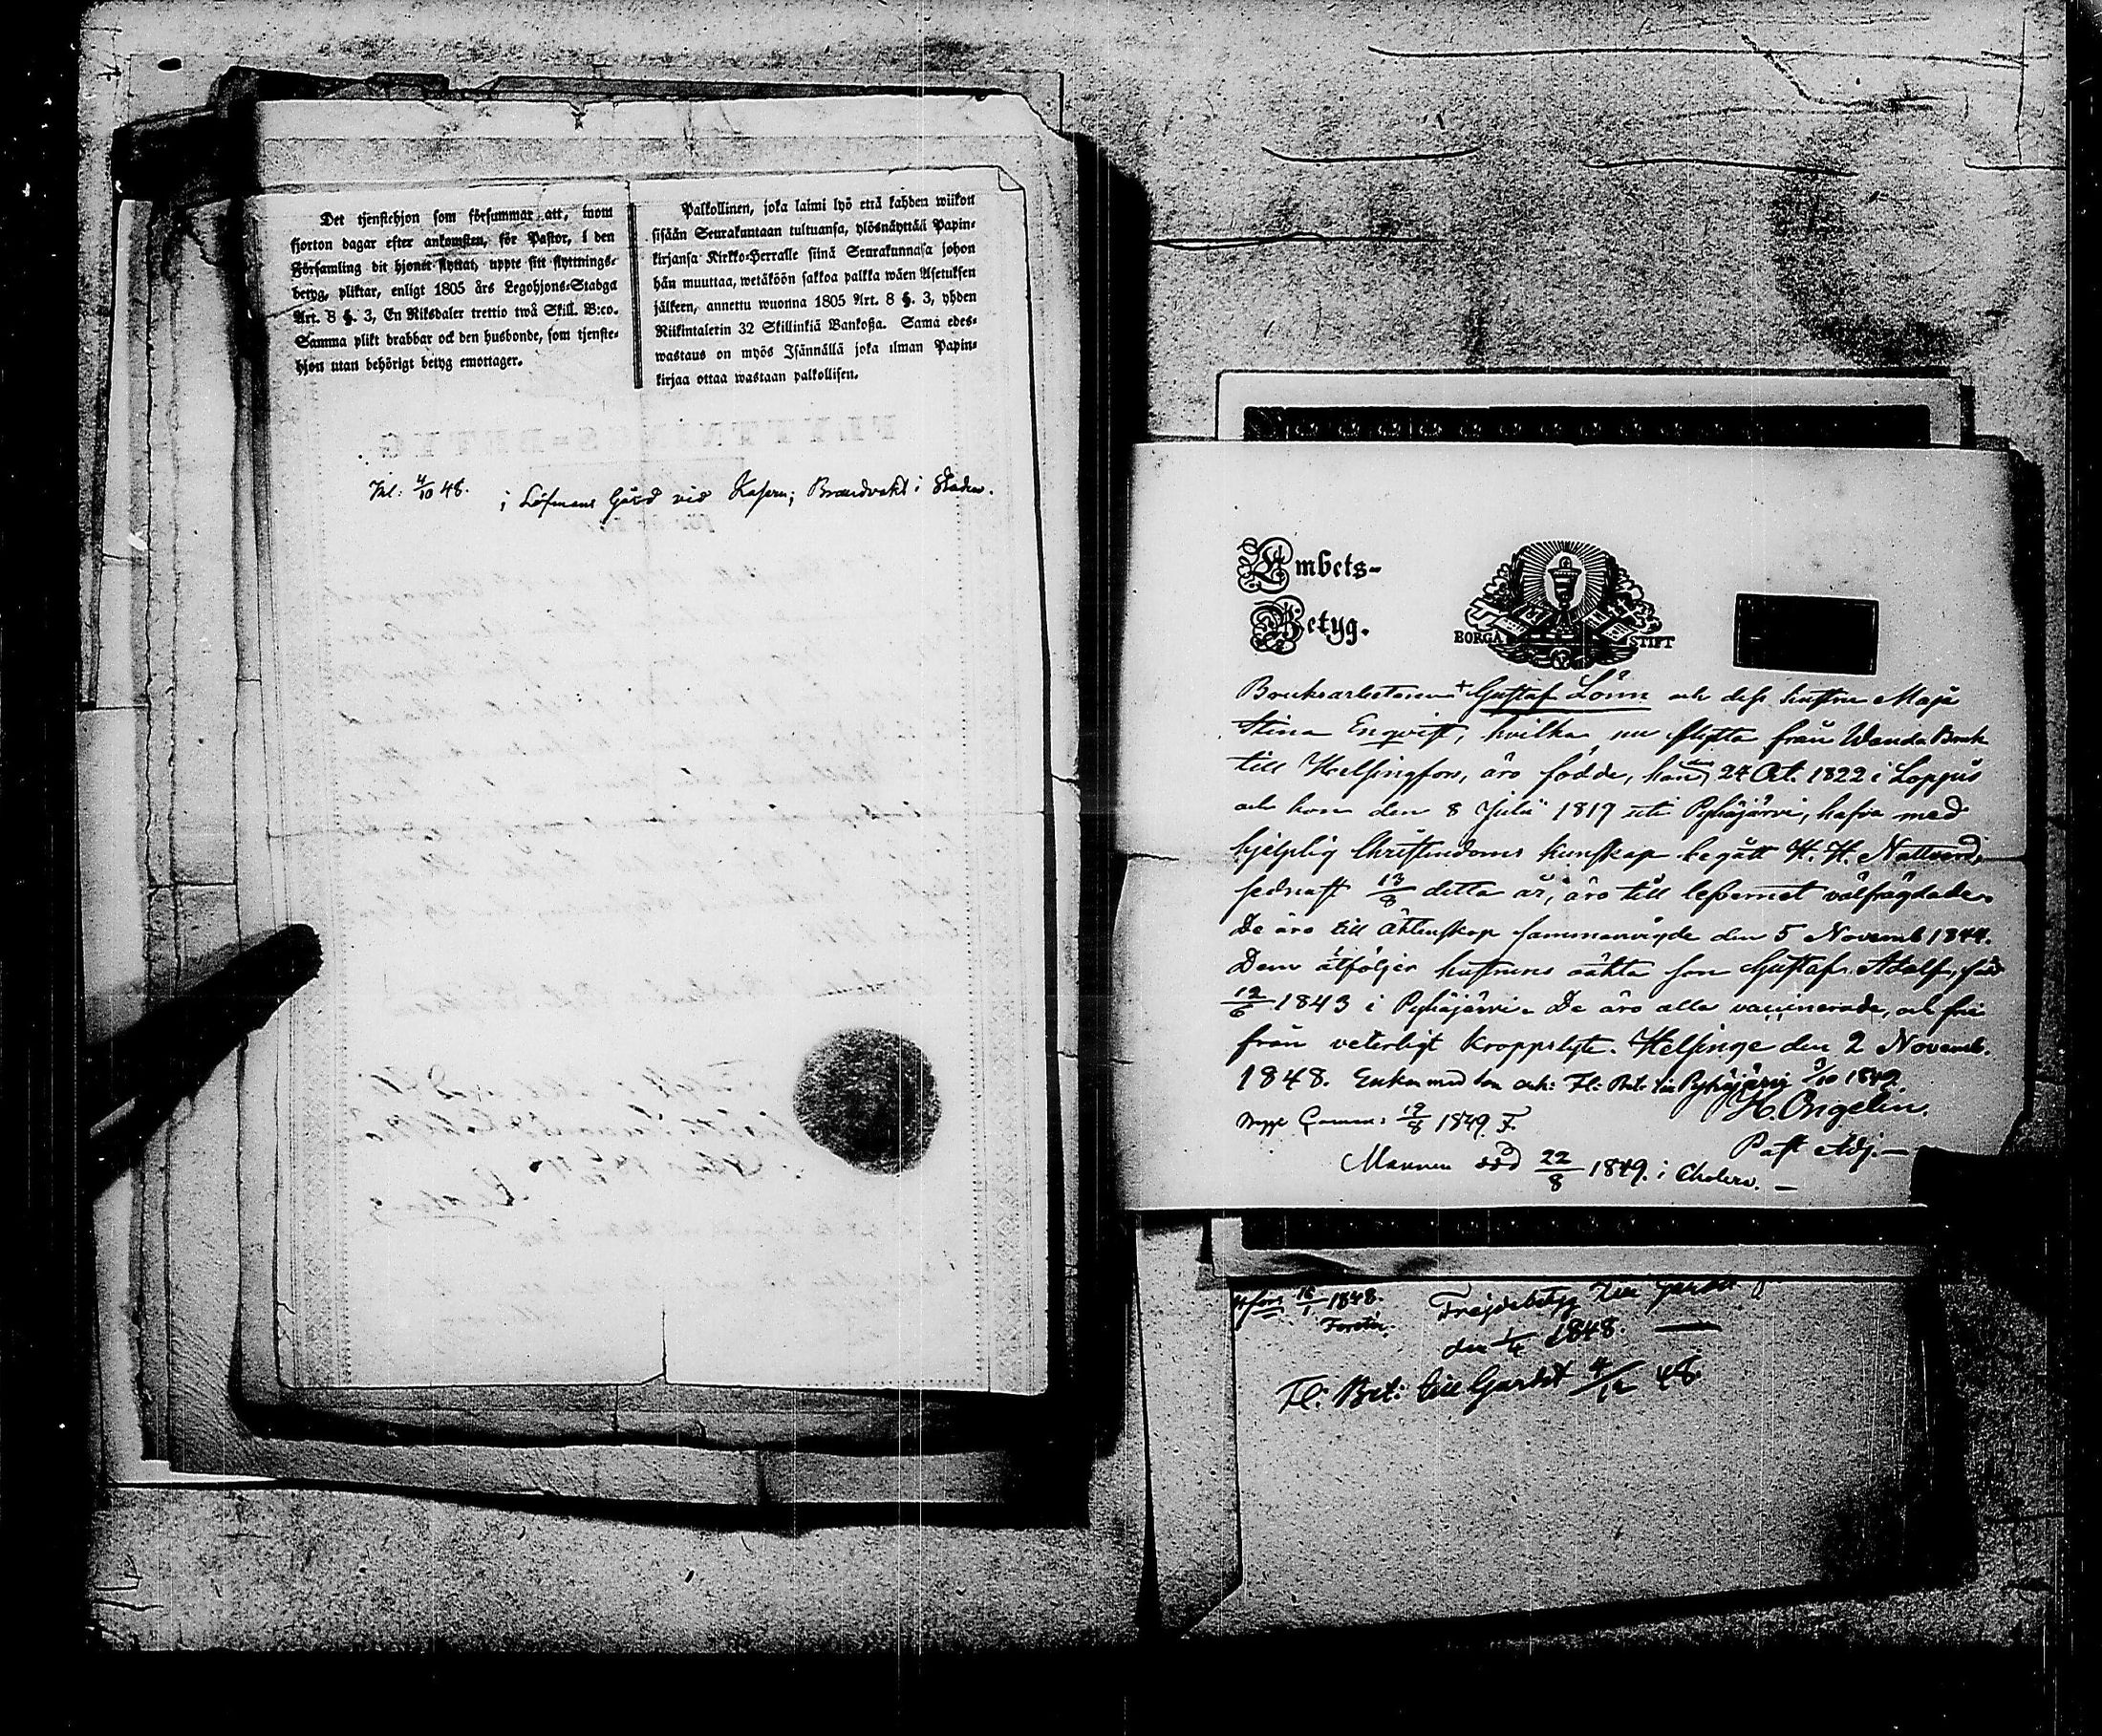 Det tjenstehjon som försummar att, inom
fjorton dagar efter ankomsten, för Pastor, i den
Församling dit hjonet flyttat, uppte sitt flyttnings-
betyg, pliktar, enligt 1805 års Legohjons-Stadga
Art. 8 §. 3, En Riksdaler trettio twå Skill. B:co.
Samma plikt drabbar ock den husbonde, som tjenste-
hjon utan behörigt betyg emottager.
Palkollinen, joka laimi lyö että kahden wiikon
sisään Seurakuntaan tultuansa, ylösnäyttää Papin-
kirjansa Kirkko-Herralle siinä Seurakunnasa johon
hän muuttaa, wetäköön sakkoa palkka wäen Asetuksen
jälkeen, annettu wuonna 1805 Art. 8 §. 3, yhden
Riikintalerin 32 Skillinkiä Bankossa. Sama edes-
wastaus on myös Isännällä joka ilman Papin-
kirjaa ottaa wastaan palkollisen.
Inl: 4/10 48. i Löfmans Gård vid Kasern; Brandvakt i Staden.
Embets-
Betyg.
BORGÅ STIFT
Bruksarbetaren + Gustaf Lönn och dess hustru Maja
Stina Enqvist, hvilka nu flytta från Wanda Bruk
till Helsingfors, äro födde, han den 24 Oct. 1822 i Loppis
och hon den 8 Julii 1817 uti Pyhäjärvi, hafva med
hjelplig Christendoms kunskap begått H. H. Nattvard,
sednast 13/8 detta år, äro till lefvernet välfrägdade.
De äro till äktenskap sammanvigde den 5 Novemb 1844.
Dem åtföljer hustruns oäkta son Gustaf Adolf, född
12/6 1843 i Pyhäjärvi. De äro alla vaccinerade, och frie
från veterligt kroppslyte. Helsinge den 2 Novemb.
1848. Enkan med son erh: Fl: Bet: till Pyhäjärvi 3/10 1849.
H. Ongelin.
Past Adj.
19/8 1849. F.
Mannen död 22/8 1849. i Cholera.
H:fors 16/1 1848. Frejdebetyg till Gardet
den 1/4 1848.
Fl: Bet: till Gardet 4/12 48.